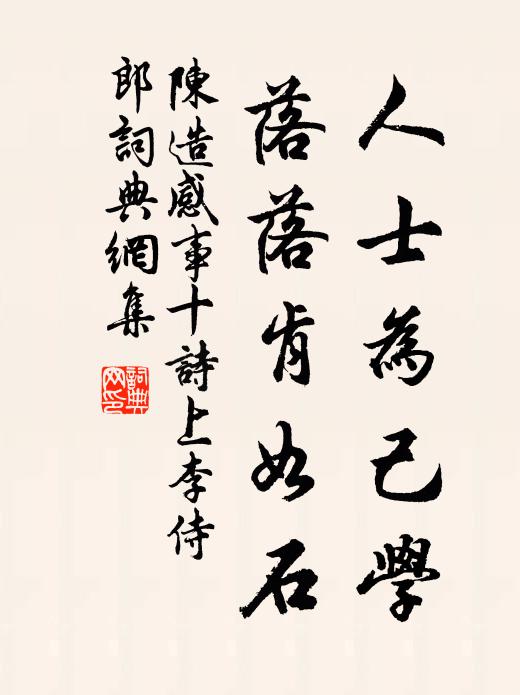 人士為己學
落落肯如石
陳造感事十詩上李侍
郎詞典網集
詞典網印